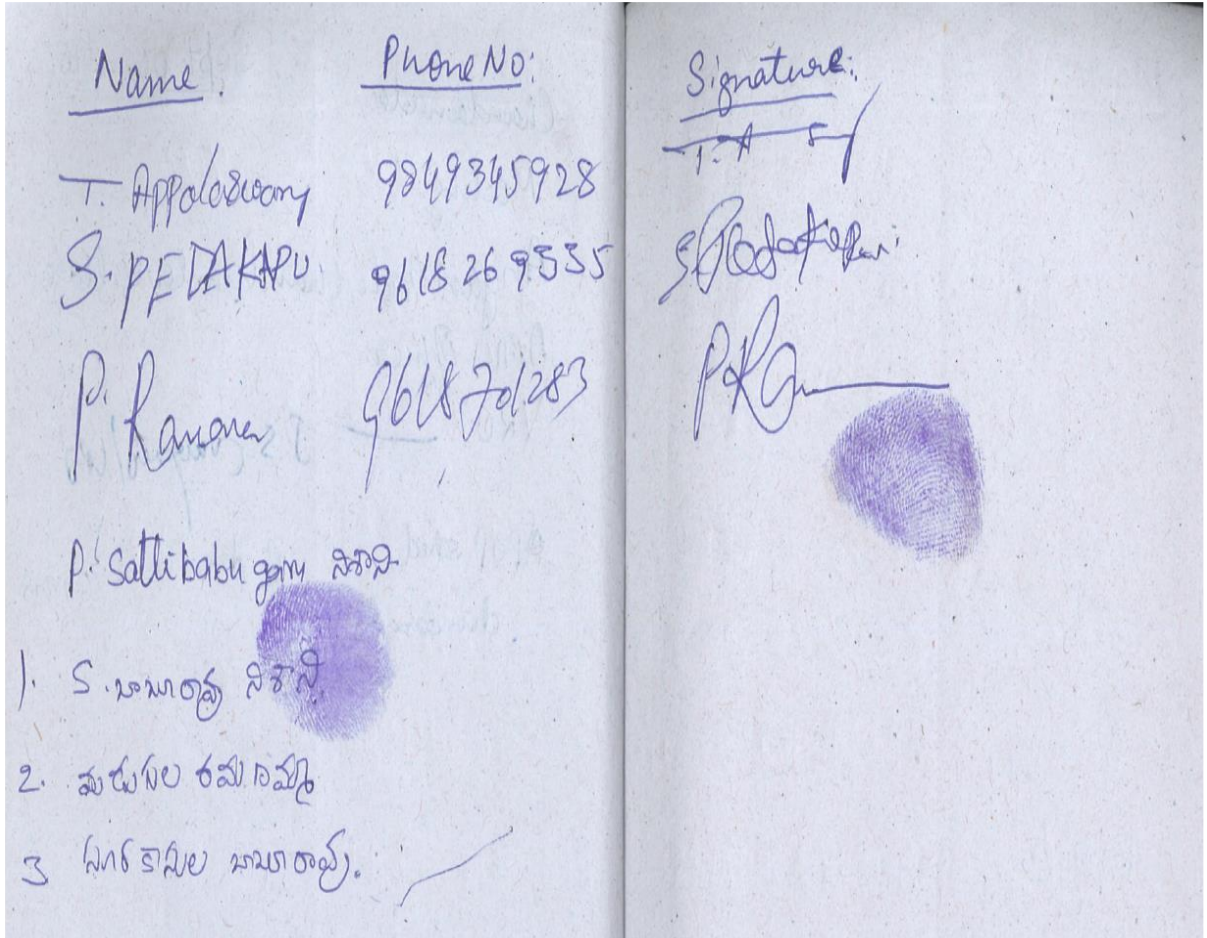 Name Phone No: Signature:
T. Appalaswamy 9849345928 T. A
S. PEDAKAPU 9618269535 S Pedakapu
P. Ramana 9618701283 P R
P. Sattibabu garu నిశాని
1. S. బాబూరావు నిశాని
2. రమణమ్మ
3 బాబూరావు.